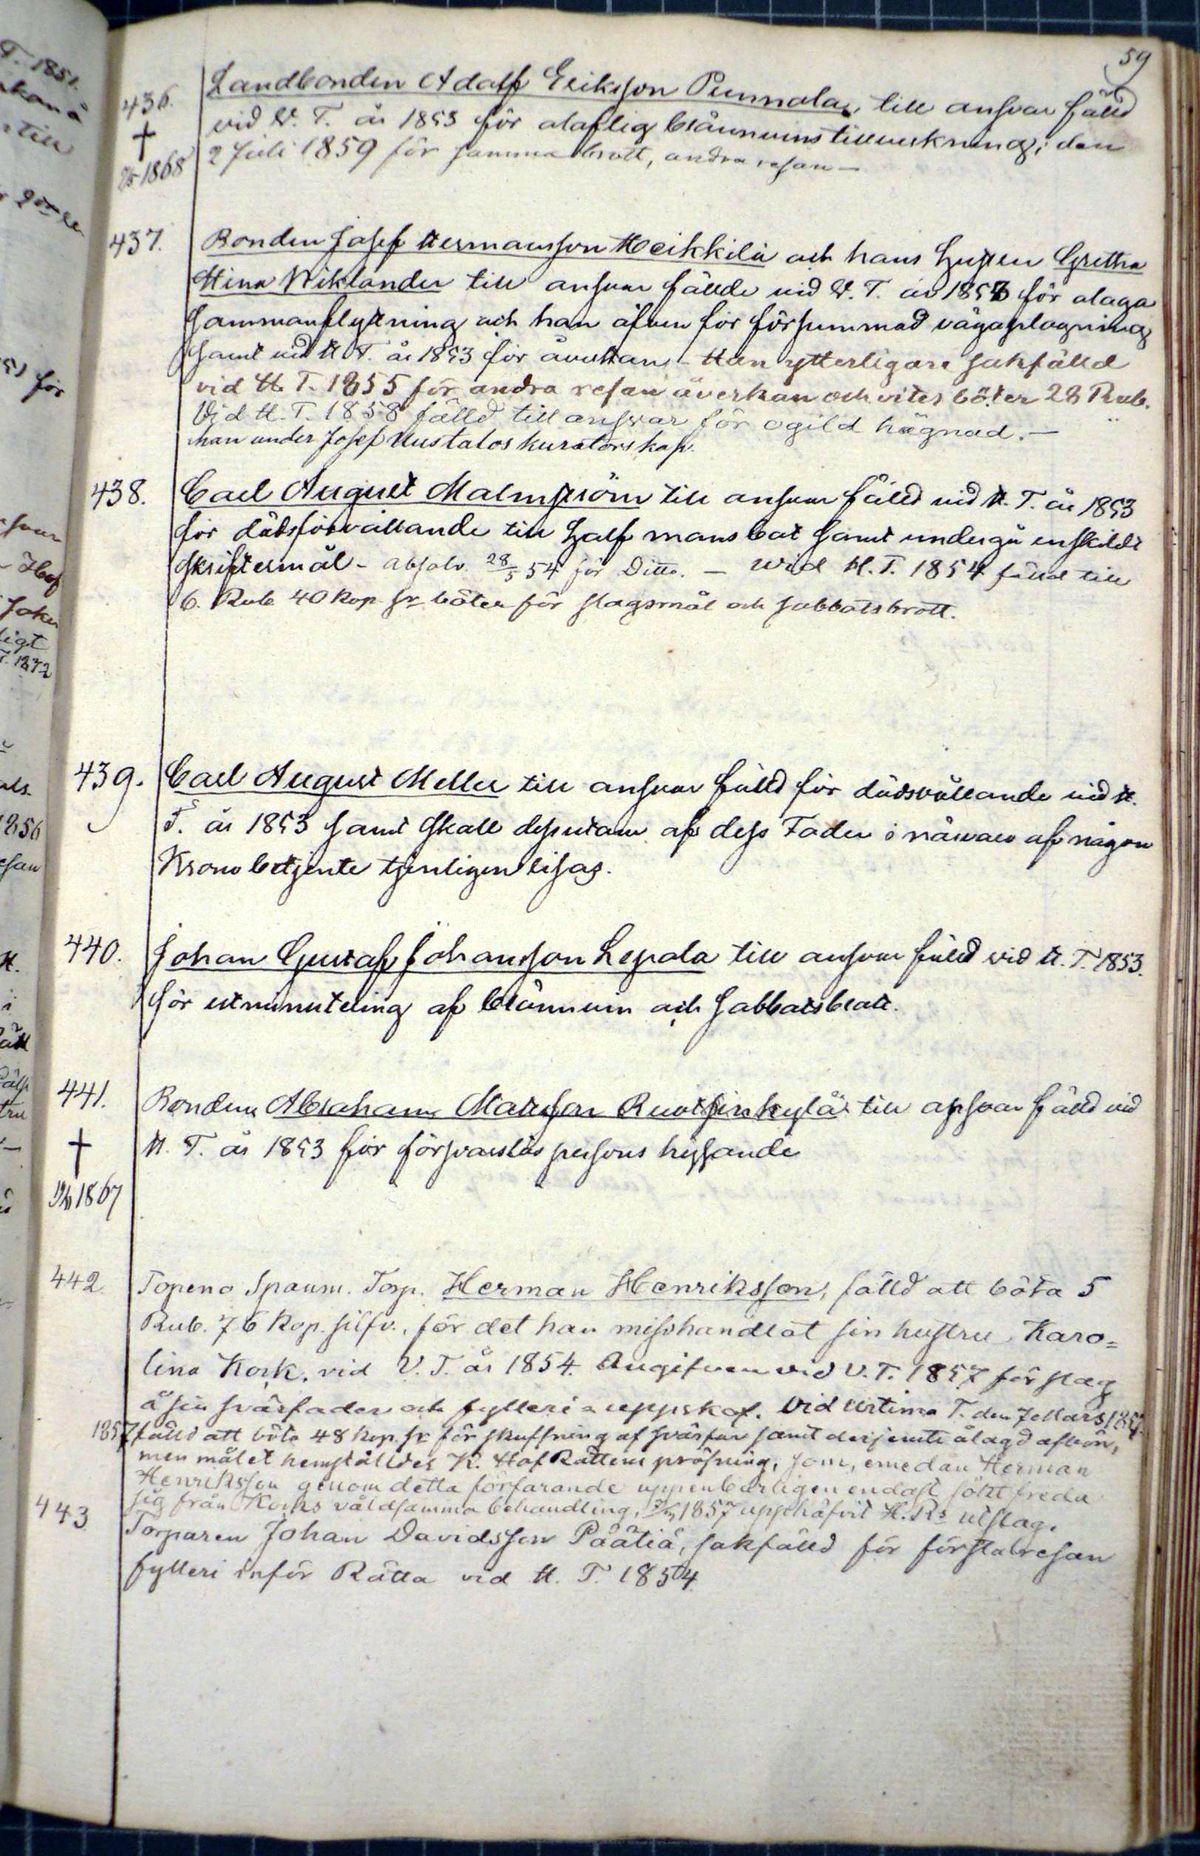 59
436. Landbonden Adolf Eriksson Punnola, till ansvar fälld
† vid V. T. år 1853 för olaflig bränvins tillverkning; den
1868 2 Juli 1859 för samma brott, andra resan –
437. Bonden Josef Hermansson Heikkilä och hans hustru Gretha
Stina Wiklander till ansvar fällde vid V. T. år 1853 för olaga
sammanflyttning och han äfven för försummad vägaplogning
samt vid H. T. år 1853 för åverkan – Han ytterligare sakfälld
vid H. T. 1855 för andra resan åverkan och vites böter 28 Rub.
Vid H. T. 1858 fälld till ansvar för ogild hägnad. –
han under Josef Hustalos kuratorskap.
438. Carl August Malmström till ansvar fälld vid H. T. år 1853
för dödsförvållande till half mansbot samt undergå enskildt
skriftermål – absolv. 28/5 54 för Ditto. – Wid H. T. 1854 fälld till
6. Rub 40 kop. Sr böter för slagsmål och sabbatsbrott.
439. Carl August Meller till ansvar fälld för dödsvållande vid H.
T. år 1853 samt skall dessutom af dess Fader i närvaro af någon
Kronobetjente tjenligen risas.
440. Johan Gustaf Johansson Lepola till ansvar fälld vid H. T. 1853.
för utminutering af bränvin och sabbatsbrott.
441. Bonden Abraham Matsson Ruotsinkylä till ansvar fälld vid
† H. T. år 1853 för försvarslös persons hysande
1867
442. Topeno Spanm. Torp. Herman Henriksson, fälld att böta 5
Rub. 76 kop. silfv., för det han misshandlat sin hustru Karo=
lina Kork, vid V. T. år 1854. Angifven vid V. T. 1857 för slag
å sin svärfader och fylleri – uppskof. Vid urtima T. den 7 Mars 1857
1857 fälld att böta 48 kop. Sr för skuffning af svärfar samt derjemte ålagd afbön,
men målet hemställdes K. Hof Rättens pröfning, som, emedan Herman
Henriksson genom detta förfarande uppenbarligen endast sökt freda
sig från Korks våldsamma behandling, 1857 upphäfvit H. Rs utslag.
443 Torparen Johan Davidsson Päätiä, sakfälld för första resan
fylleri inför Rätta vid H. T. 1854